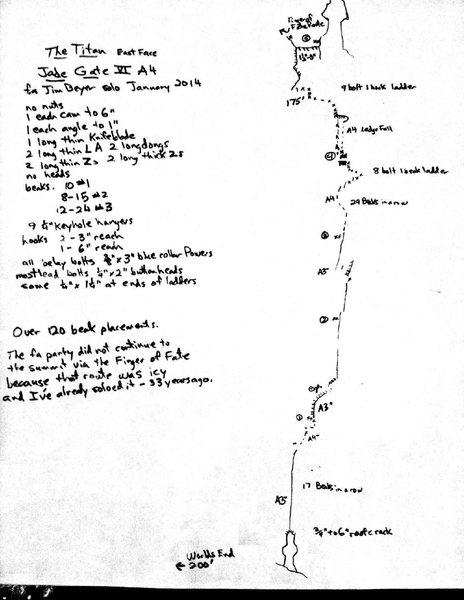 The Titan East Face
Jade Gate VI A4
fa Jim Beyer solo January 2014
no nuts
1 each cam to 6"
1 each angle to 1"
1 long thin Knifeblade
2 long thin LA 2 longdongs
2 long thin Zs 2 long thick Zs
no heads
beaks. 10 #1
8-15 #2
12-24 #3
9 ¼" Keyhole hangers
hooks 2 - 3" reach
1 - 6" reach
all belay bolts ⅜" x 3" blue rollar Powers
most lead bolts ¼" x 2" buttonheads
some ¼" x 1¼" at ends of ladders
Over 120 beak placements.
The fa party did not continue to
the summit via the Finger of Fate
because that route was icy
and I've already soloed it - 33 years ago.
Finger of
Fate Route
175'
9 bolt 1 hook ladder
A4 Ledge Fall
4
8 bolt 1 beak ladder
A4
29 Beaks in a row
3
A3
2
1
A3+
A4-
17 Beaks in a row
A3
¾" to 6" roof crack
Worlds End
← 200'